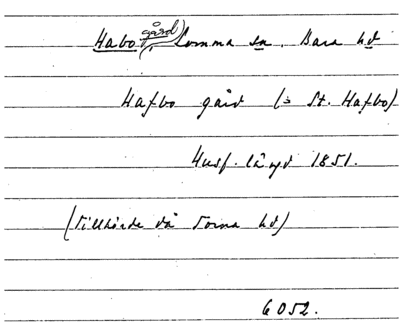 Habo (gård), Lomma sn. Bara hd
Hafbo gård (= St. Hafbo)
Husf. längd 1851.
(Tillhörde då Torna hd)
6052.